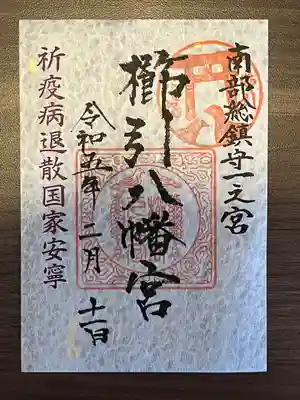 南部總鎮守一之宮
櫛引八幡宮
令和五年二月十一日
祈疫病退散国家安寧